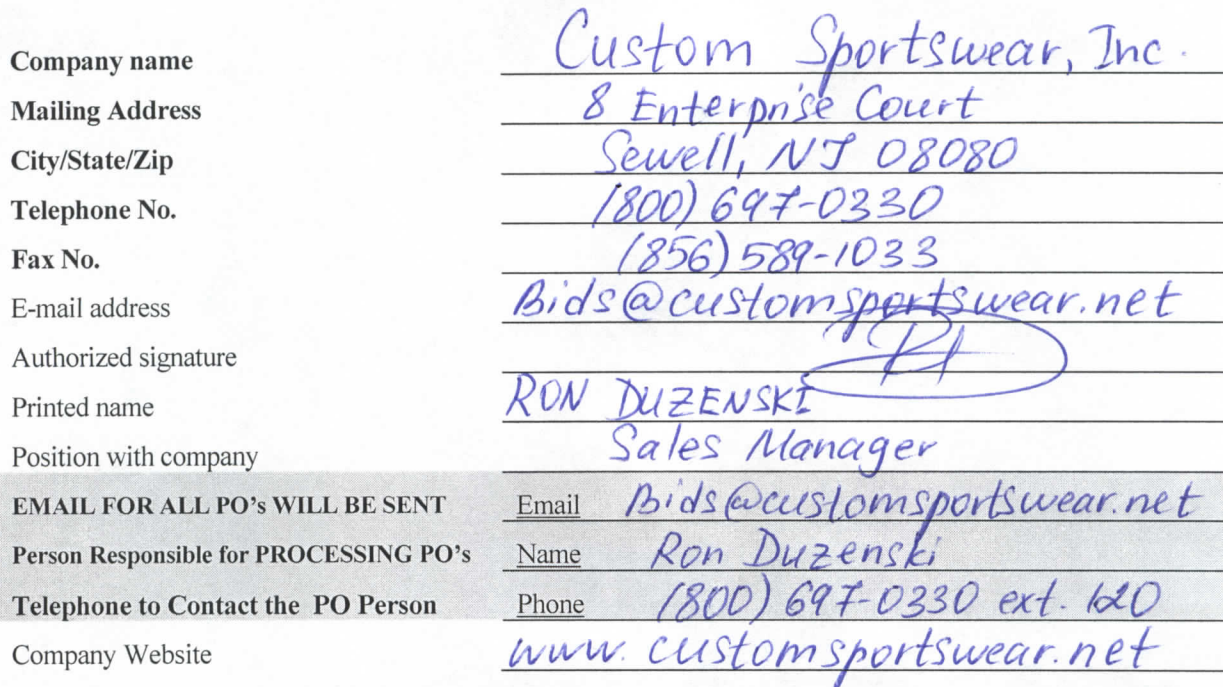 Company name Custom Sportswear, Inc.
Mailing Address 8 Enterprise Court
City/State/Zip Sewell, NJ 08080
Telephone No. (800) 697-0330
Fax No. (856) 589-1033
E-mail address Bids@customsportswear.net
Authorized signature
Printed name RON DUZENSKI
Position with company Sales Manager
EMAIL FOR ALL PO's WILL BE SENT Email Bids@customsportswear.net
Person Responsible for PROCESSING PO's Name Ron Duzenski
Telephone to Contact the PO Person Phone (800) 697-0330 ext.
Company Website www.customsportswear.net